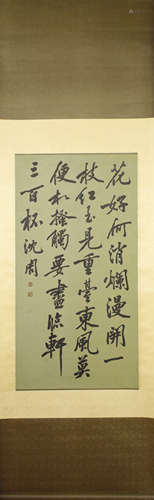 花好何消爛漫開一
枝紅玉見重臺東風莫
便相撩觸要盡臨軒
三百杯沈周